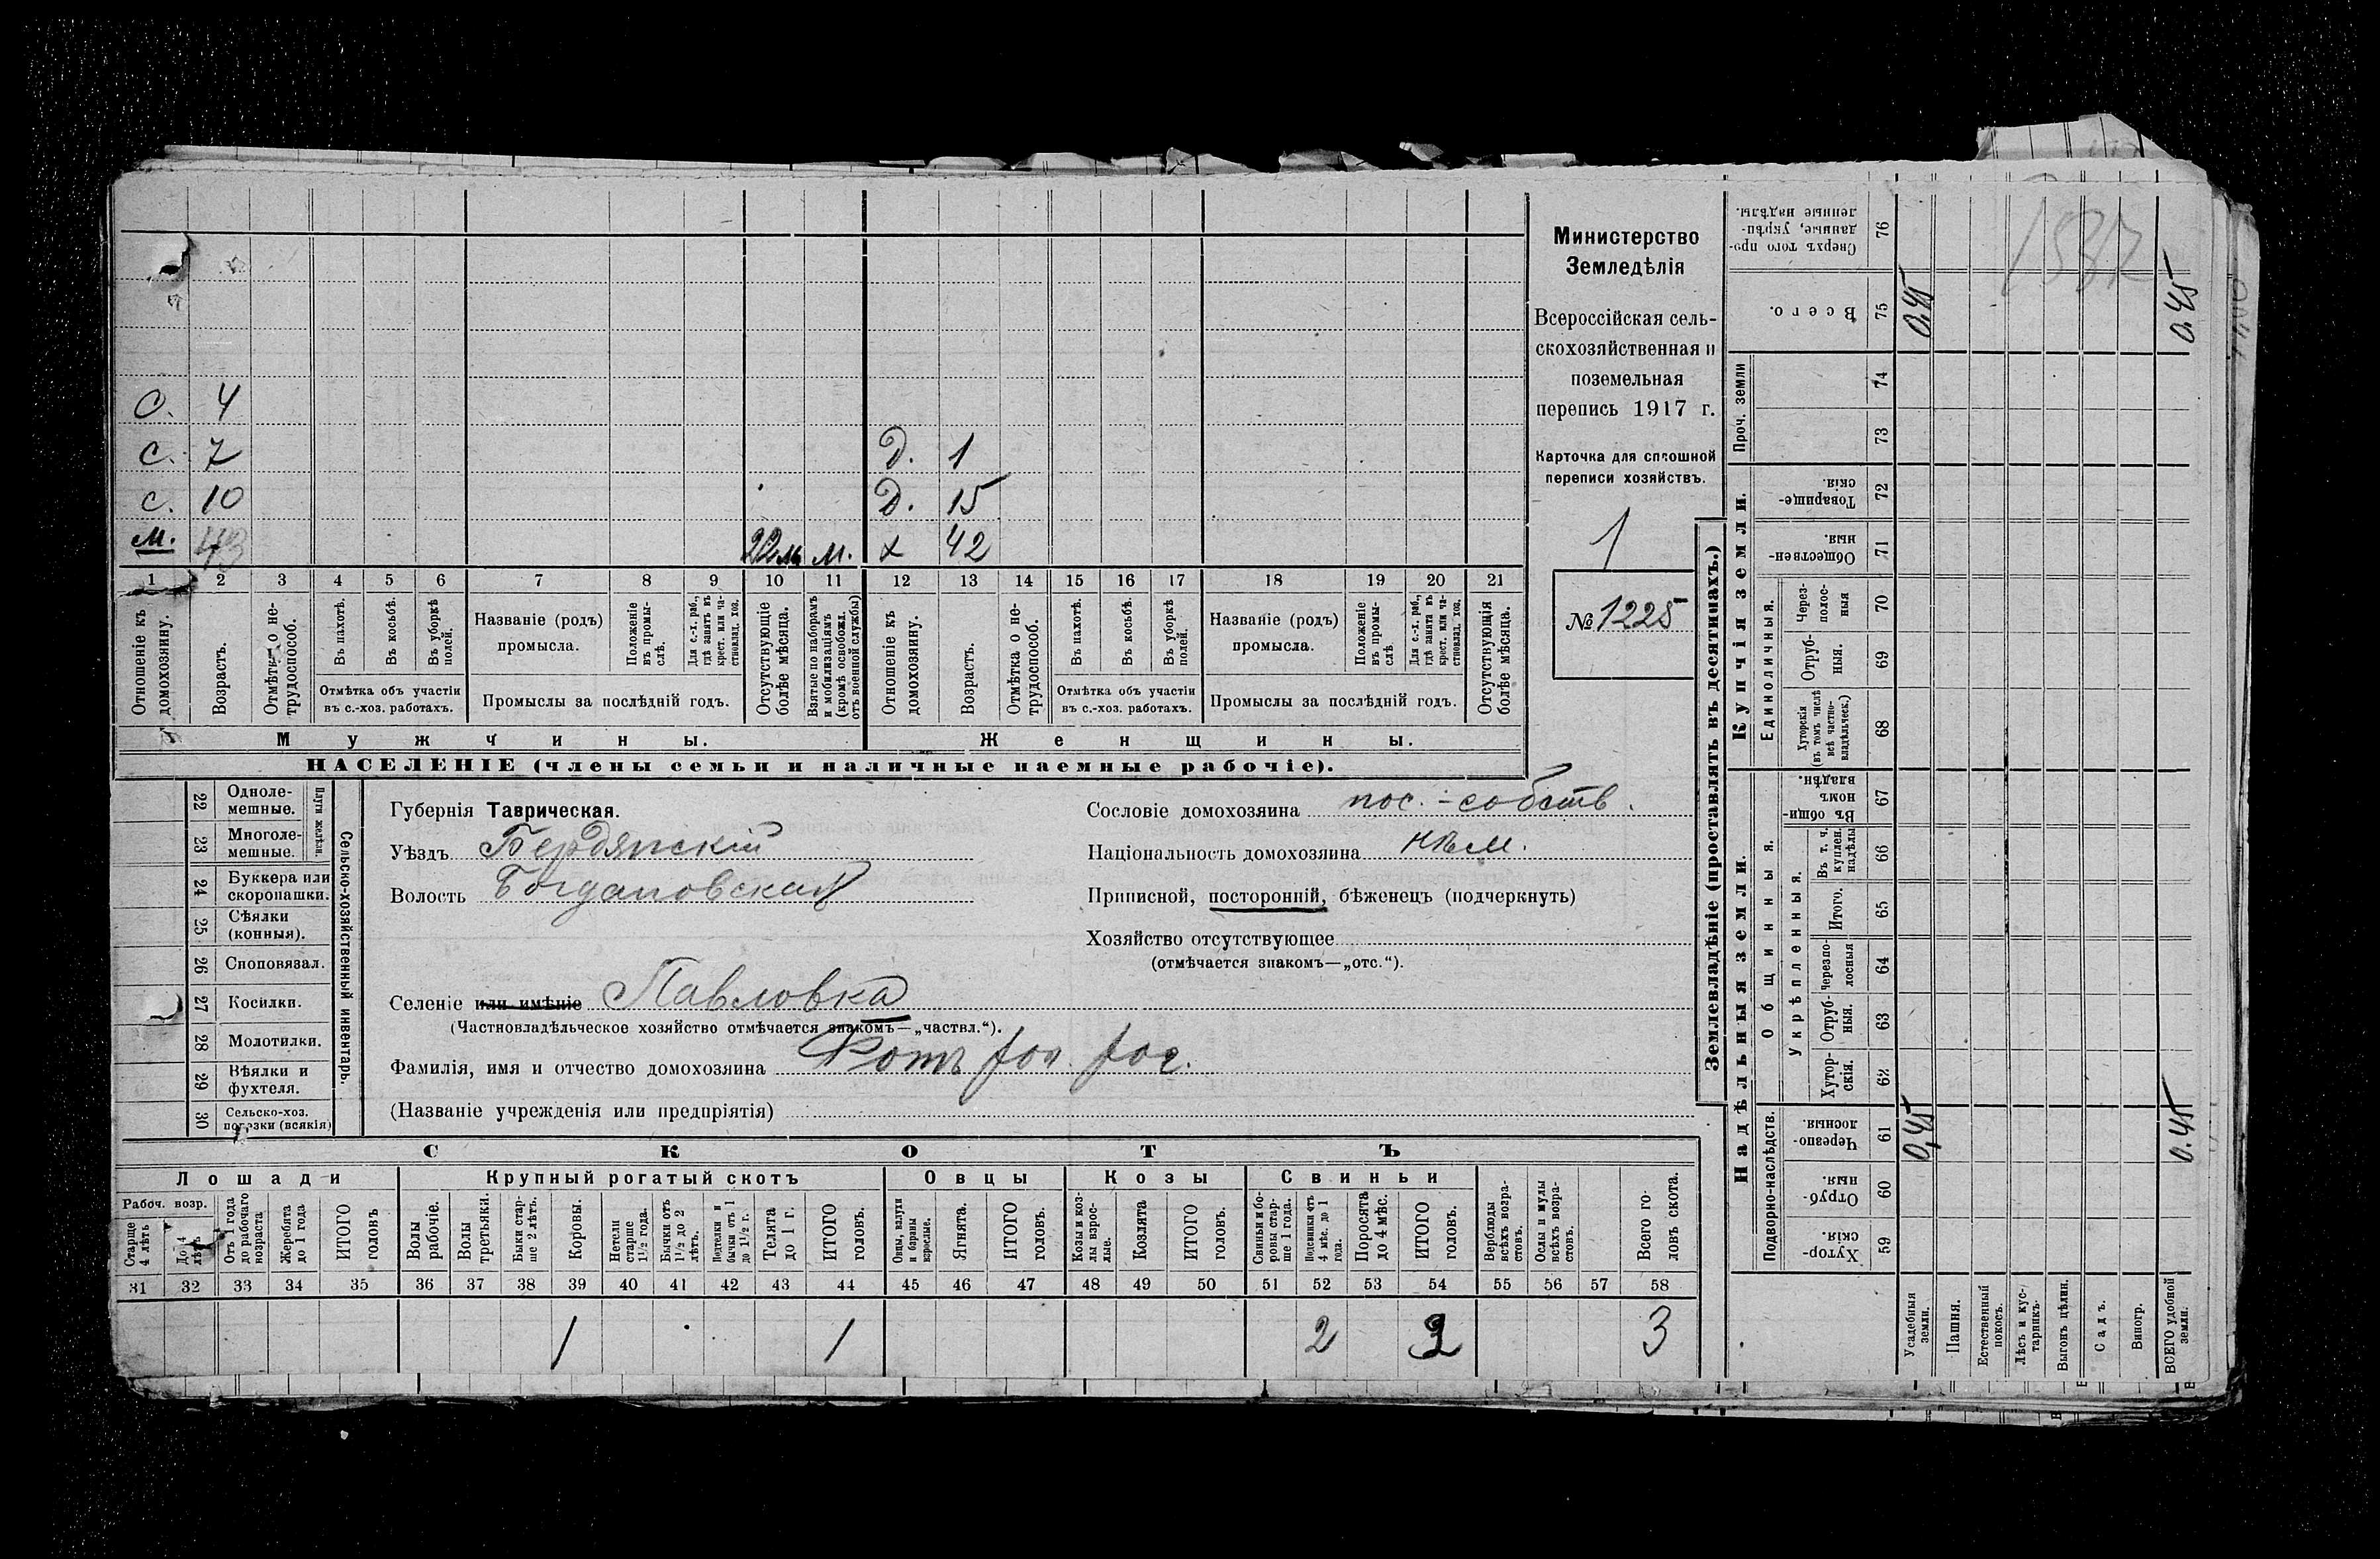 О. 4
С. 7 Д. 1
С. 10 Д. 15
М. 43 22 м. м. х 42
1 2 3 4 5 6 7 8 9 10 11 12 13 14 15 16 17 18 19 20 21
Отношеніе къ домохозяину.
Возрастъ.
Отмѣтка о не-трудоспособ.
Въ пахотѣ.
Въ косьбѣ.
Въ уборкѣ полей.
Отмѣтка объ участіи
въ с.-хоз. работахъ.
Названіе (родъ)
промысла.
Положеніе въ промы-слѣ.
Для с.-х. раб., гдѣ занятъ въ крест. или ча-стновлад. хоз.
Промыслы за послѣдній годъ.
Отсутствующіе болѣе мѣсяца.
Взятые по наборамъ и мобилизаціямъ (кромѣ освобожд. отъ военной службы)
Отношеніе къ домохозяину.
Возрастъ.
Отмѣтка о не-трудоспособ.
Въ пахотѣ.
Въ косьбѣ.
Въ уборкѣ полей.
Отмѣтка объ участіи
въ с.-хоз. работахъ.
Названіе (родъ)
промысла.
Положеніе въ промы-слѣ
Для с.-х. раб., гдѣ заняти въ крест. или ча-стновлад. хоз.
Промыслы за послѣдній годъ.
Отсутствующія болѣе мѣсяца.
Мужчины. Женщины.
НАСЕЛЕНІЕ (члены семьи и наличные наемные рабочіе).
Министерство
Земледѣлія
Всероссійская сель-
скохозяйственная и
поземельная
перепись 1917 г.
Карточка для сплошной
переписи хозяйствъ.
1
№ 1225
22 Одноле-мешные.
23 Многоле-мешные.
Плуги желѣзн.
24 Буккера или скоропашки.
25 Сѣялки (конныя).
26 Сноповязал.
27 Косилки.
28 Молотилки.
29 Вѣялки и фухтеля.
30 Сельско-хоз. повозки (всякія)
Сельско-хозяйственный инвентарь.
Губернія Таврическая.
Уѣздъ Бердянскій
Волость Богдановская
Селеніе или имѣніе Павловка
(Частновладѣльческое хозяйство отмѣчается знакомъ—„частвл.“).
Фамилія, имя и отчество домохозяина Фотъ Іог. Іог.
(Названіе учрежденія или предпріятія)
Сословіе домохозяина пос.-собств.
Національность домохозяина нѣм.
Приписной, посторонній, бѣженецъ (подчеркнуть)
Хозяйство отсутствующее
(отмѣчается знакомъ—„отс.“).
СКОТЪ
Лошади Крупный рогатый скотъ Овцы Козы Свиньи
Рабоч. возр.
Старше 4 лѣтъ
До 4 лѣтъ
Отъ 1 года до рабочаго возраста
Жеребята до 1 года
ИТОГО головъ
Волы рабочіе.
Волы третьяки.
Быки стар-ше 2 лѣтъ.
Коровы.
Нетели старше 1½ года.
Бычки отъ 1½ до 2 лѣтъ.
Подтелки и бычки отъ 1 до 1½ г.
Телята до 1 г.
ИТОГО головъ.
Овцы, валухи и бараны взрослые.
Ягнята.
ИТОГО головъ.
Козы и коз-лы взрос-лые.
Козлята
ИТОГО головъ.
Свиньи и бо-ровы стар-ше 1 года.
Подсвинки отъ 4 мѣс. до 1 года.
Поросята до 4 мѣс.
ИТОГО головъ.
Верблюды всѣхъ возра-стовъ.
Ослы и мулы всѣхъ возра-стовъ.
Всего го-ловъ скота.
31 32 33 34 35 36 37 38 39 40 41 42 43 44 45 46 47 48 49 50 51 52 53 54 55 56 57 58
1 1 2 2 3
Землевладѣніе (проставлять въ десятинахъ.)
Надѣльныя земли. Купчія земли.
Подворно-наслѣдств.
Общинныя.
Укрѣпленныя.
Единоличныя.
Проч. земли
Хутор-скія. 59
Отруб-ныя. 60
Черезпо-лосныя. 61
Хутор-скія. 62
Отруб-ныя. 63
Черезпо-лосныя 64
Итого. 65
Въ т. ч. куплен. надѣлы 66
Въ общи-номъ владѣн. 67
Хуторскія (въ томъ числѣ всѣ частно-владѣльческ.) 68
Отруб-ныя. 69
Через-полос-ныя 70
Обществен-ныя. 71
Товарище-скія. 72
73
74
Всего. 75
Сверхъ того про-данные, укрѣп-ленные надѣлы. 76
Усадебныя земли. 0,45 0,45
Пашня.
Естественный покосъ.
Лѣсъ и кус-тарникъ.
Выгонъ цѣлин.
Садъ.
Виногр.
ВСЕГО удобной земли. 0.45 0.45